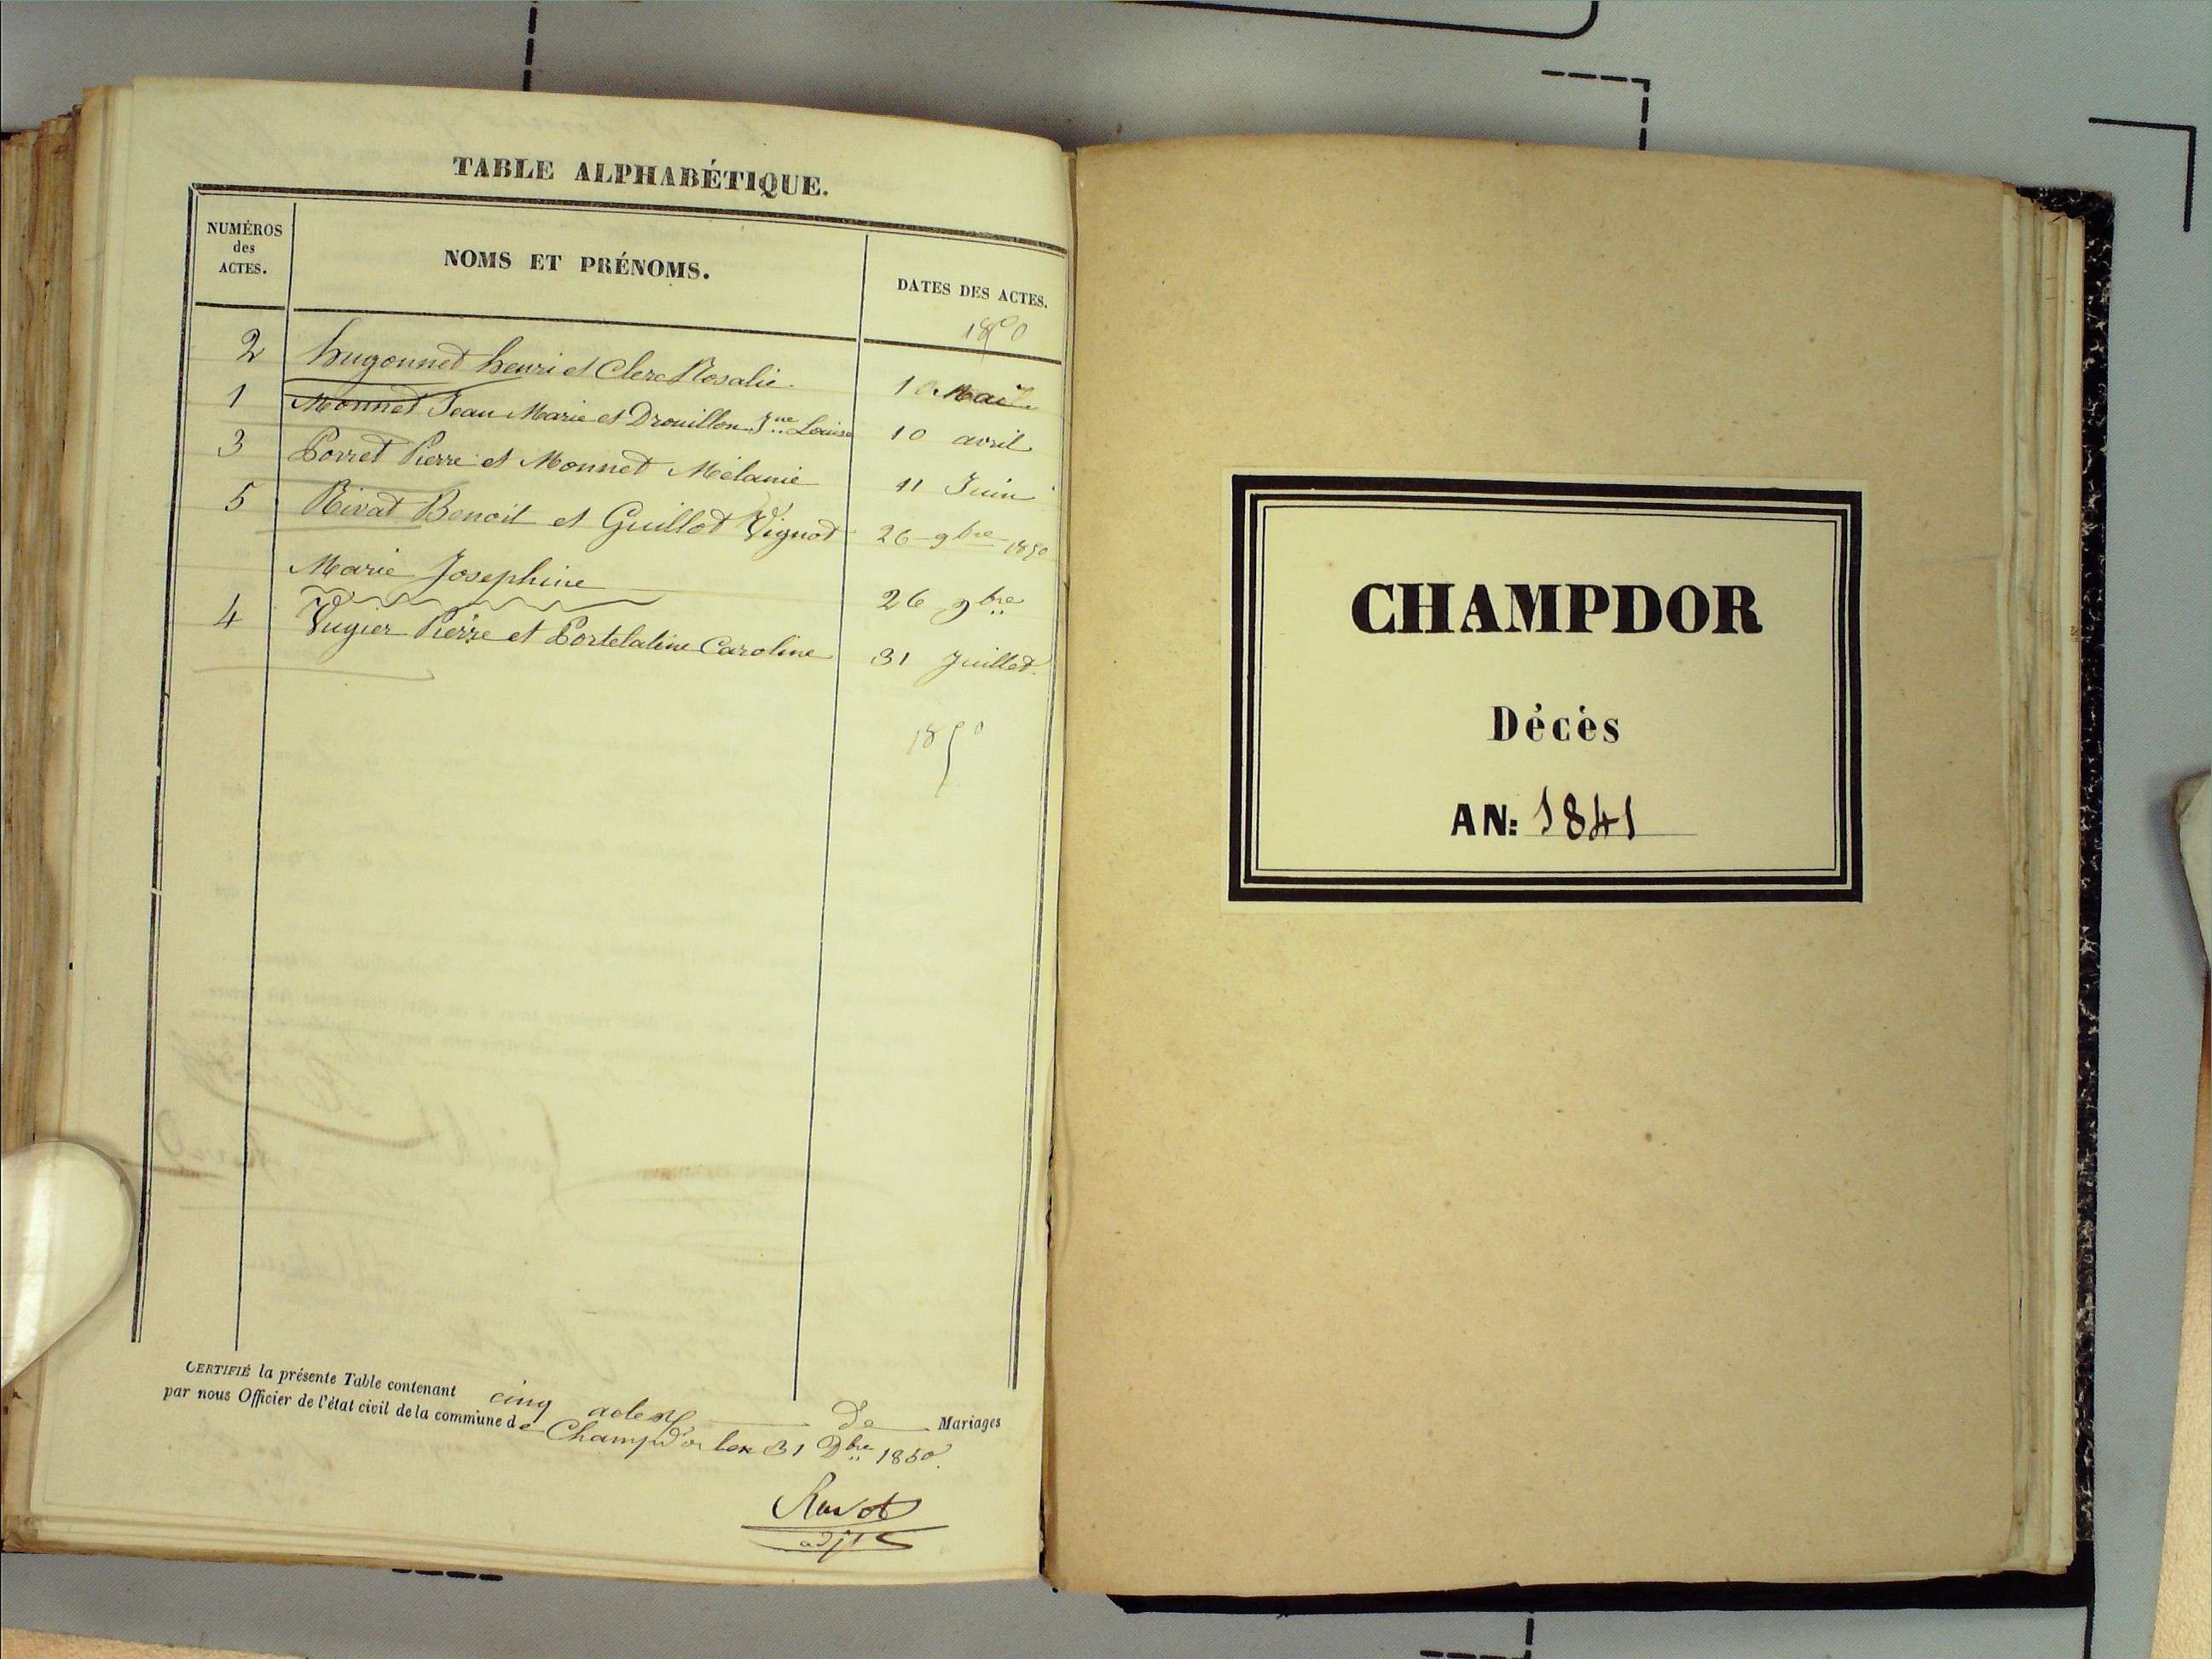 TABLE ALPHABÉTIQUE.
NUMÉROS
des
ACTES.
NOMS ET PRÉNOMS.
DATES DES ACTES.
1850
2 hugonnet henri et Clerc Rosalie. 10 Mai
1 Monnet Jean Marie et Drouillon Jne Louise 10 avril
3 Borret Pierre et Monnet Mélanie 11 Juin
5 Rivat Benoit et Guillot Vignot 26 9bre 1850
Marie Josephine 26 9bre
4 Vugier Pierre et Portelatine Caroline 31 Juillet.
1850
CERTIFIÉ la présente Table contenant cinq actes de Mariages
par nous Officier de l'état civil de la commune de Champdor le 31 Dbre 1850.
Ravot
adjt
CHAMPDOR
Décès
AN: 1841